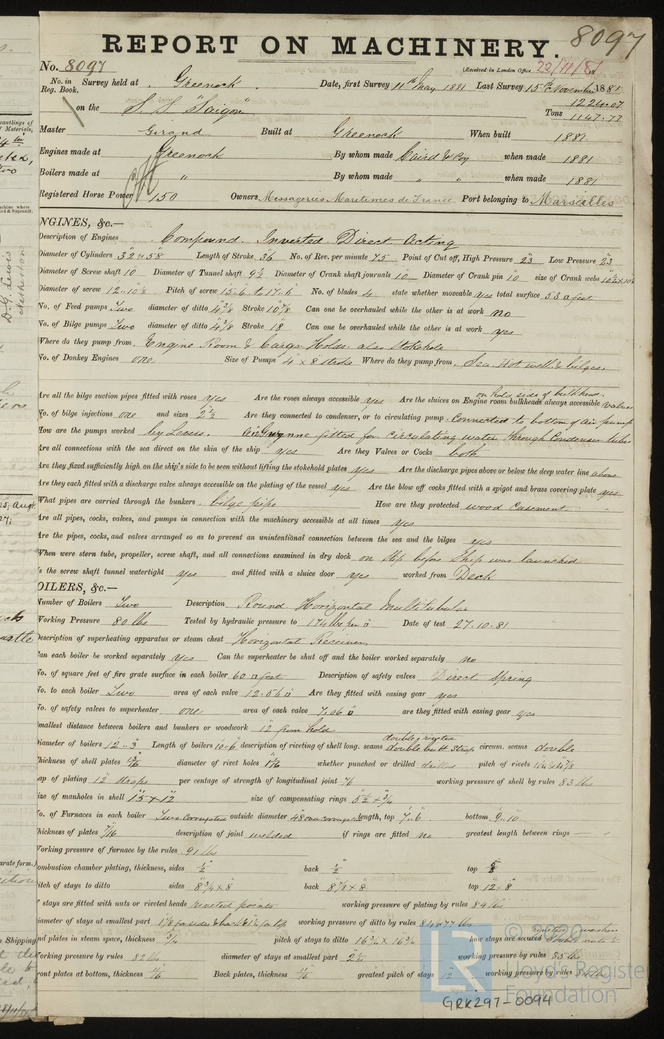 REPORT ON MACHINERY. 8097
No. 8097 (Received in London Office 22/11/81
No. in Survey held at Greenock Date, first Survey 11th May, 1881 Last Survey 15th November 1881
Reg. Book.
on the S.S. "Saigon" Tons 1226.07
1147.77
Master Girand Built at Greenock When built 1881
Engines made at Greenock By whom made Caird & Coy when made 1881
Boilers made at " By whom made " " when made 1881
Registered Horse Power 150 Owners Messageries Maritimes de France Port belonging to Marseilles
NGINES, &c.—
Description of Engines Compound Inverted Direct Acting
Diameter of Cylinders 32 & 58 Length of Stroke 36 No. of Rev. per minute 75 Point of Cut off, High Pressure 23 Low Pressure 23
Diameter of Screw shaft 10 Diameter of Tunnel shaft 9½ Diameter of Crank shaft journals 10 Diameter of Crank pin 10 size of Crank webs
Diameter of screw Pitch of screw 15-6 to 17-6 No. of blades 4 state whether moveable yes total surface 53 feet
No. of Feed pumps Two diameter of ditto 4⅞ Stroke 10⅞ Can one be overhauled while the other is at work no
No. of Bilge pumps Two diameter of ditto 4⅜ Stroke 18 Can one be overhauled while the other is at work yes
Where do they pump from Engine Room & Cargo Holds also Stokehole
No. of Donkey Engines one Size of Pumps 4 x 8 stroke Where do they pump from Sea, Hot well & bilges
on hold side of bulkhead
Are all the bilge suction pipes fitted with roses yes Are the roses always accessible yes Are the sluices on Engine room bulkheads always accessible valves
No. of bilge injections one and sizes 2½ Are they connected to condenser, or to circulating pump Connected to bottom of air pump
How are the pumps worked by Levers. Gwynne fitted for circulating water through Condenser tubes
Are all connections with the sea direct on the skin of the ship yes Are they Valves or Cocks both
Are they fixed sufficiently high on the ship's side to be seen without lifting the stokehold plates yes Are the discharge pipes above or below the deep water line above
Are they each fitted with a discharge valve always accessible on the plating of the vessel yes Are the blow off cocks fitted with a spigot and brass covering plate yes
What pipes are carried through the bunkers bilge pipe How are they protected wood Casement
Are all pipes, cocks, valves, and pumps in connection with the machinery accessible at all times yes
Are the pipes, cocks, and valves arranged so as to prevent an unintentional connection between the sea and the bilges yes
When were stern tube, propeller, screw shaft, and all connections examined in dry dock on slip before Ship was launched
Is the screw shaft tunnel watertight yes and fitted with a sluice door yes worked from Deck
OILERS, &c.—
Number of Boilers Two Description Round Horizontal Multitubular
Working Pressure 80 lbs Tested by hydraulic pressure to 174 lbs per □ Date of test 27.10.81
Description of superheating apparatus or steam chest Horizontal Receiver
Can each boiler be worked separately yes Can the superheater be shut off and the boiler worked separately no
No. of square feet of fire grate surface in each boiler 60 □ feet Description of safety valves Direct Spring
No. to each boiler Two area of each valve 12.56 □ Are they fitted with easing gear yes
No. of safety valves to superheater one area of each valve 7.06 □ are they fitted with easing gear yes
Smallest distance between boilers and bunkers or woodwork 12 from hold
Diameter of boilers 12-3 Length of boilers 10-6 description of riveting of shell long. seams double riveted double butt straps circum. seams double
Thickness of shell plates diameter of rivet holes whether punched or drilled drilled pitch of rivets
Lap of plating 12 straps per centage of strength of longitudinal joint 76 working pressure of shell by rules 83 lbs
Size of manholes in shell 15 x 12 size of compensating rings 5½ x ¾
No. of Furnaces in each boiler Two corrugated outside diameter 48 length, top 7-6 bottom 9-10
Thickness of plates 7/16 description of joint welded if rings are fitted no greatest length between rings —
Working pressure of furnace by the rules 91 lbs
Combustion chamber plating, thickness, sides ½ back ½ top ⅝
Pitch of stays to ditto sides 8¾ x 8 back 8⅞ x 8 top 12 x 8
If stays are fitted with nuts or riveted heads riveted points working pressure of plating by rules 84 lbs
Diameter of stays at smallest part working pressure of ditto by rules 84 & 77 lbs
End plates in steam space, thickness ¾ pitch of stays to ditto 16¾ x 16¾ how stays are secured double nuts &
Working pressure by rules 82 lbs diameter of stays at smallest part working pressure by rules 85 lbs
Front plates at bottom, thickness Back plates, thickness greatest pitch of stays 12 working pressure by rules
© 2020
LR Lloyd's Register
Foundation
GRK297-0094